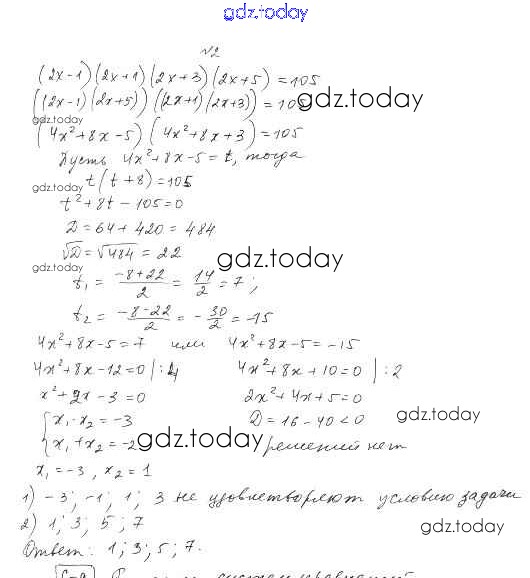 gdz.today
№2
(2x-1)(2x+1)(2x+3)(2x+5)=105
((2x-1)(2x+5))((2x+1)(2x+3))=105
gdz.today
gdz.today
(4x²+8x-5)(4x²+8x+3)=105
Пусть 4x²+8x-5=t, тогда
t(t+8)=105
gdz.today
t²+8t-105=0
D=64+420=484
√D=√484=22
gdz.today
gdz.today
t₁=(-8+22)/2=14/2=7;
t₂=(-8-22)/2=-30/2=-15
4x²+8x-5=7 или 4x²+8x-5=-15
4x²+8x-12=0|:4 4x²+8x+10=0|:2
x²+2x-3=0 2x²+4x+5=0
{x₁·x₂=-3 D=16-40<0
gdz.today
x₁+x₂=-2 решений нет
gdz.today
x₁=-3, x₂=1
1) -3; -1; 1; 3 не удовлетворяют условию задачи
2) 1; 3; 5; 7
gdz.today
Ответ: 1; 3; 5; 7.